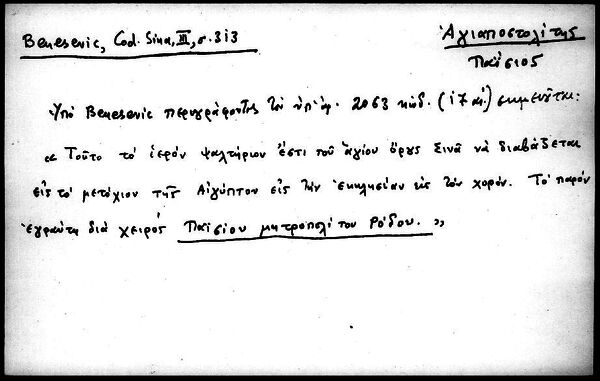 Benesevic, Cod. Sina, III, σ. 313
Ἁγιαποστολίτης
Παΐσιος
Ὑπὸ Benesevic περιγράφοντος τὸν ὑπ' ἀρ. 2063 κώδ. (17 αἰ.) σημειοῦται:
« Τοῦτο τό ἱερόν ψαλτήριον ἔστι τοῦ ἁγίου ὄρους Σινᾶ νὰ διαβάζεται
εἰς τό μετόχιον τῆς Αἰγύπτου εἰς τὴν ἐκκλησίαν εἰς τὸν χορόν. Τὸ παρόν
ἐγράφη διά χειρός Παϊσίου μητροπολίτου Ρόδου. »